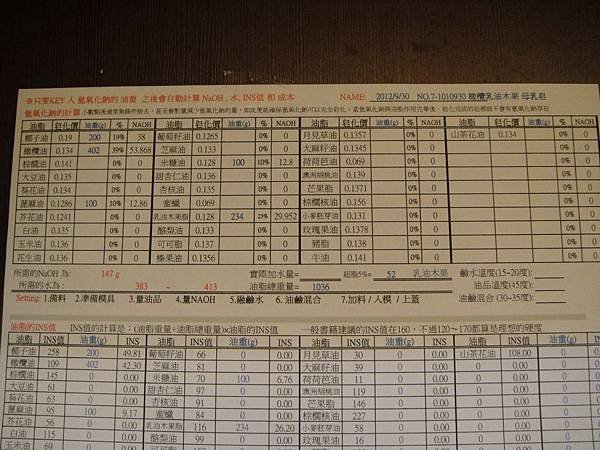 ※只要KEY 入 氫氧化鈉的 油重 之後會自動計算 NaOH , 水, INS值 和 成本 NAME: 2012/9/30 NO.7-1010930 橄欖乳油木果 母乳皂
油脂 皂化價 油重(g) % NAOH 油脂 皂化價 油重(g) % NAOH 油脂 皂化價 油重(g) % NAOH 油脂 皂化價 油重(g) % NAOH
椰子油 0.19 200 19% 38 葡萄籽油 0.1265 0% 0 月見草油 0.1357 0% 0 山茶花油 0.134 0% 0
橄欖油 0.134 402 39% 53.868 芝麻油 0.133 0% 0 大麻籽油 0.1345 0% 0 0% 0
棕櫚油 0.141 0% 0 米糠油 0.128 100 10% 12.8 荷荷芭油 0.069 0% 0 0% 0
大豆油 0.135 0% 0 甜杏仁油 0.136 0% 0 澳洲胡桃油 0.139 0% 0 0% 0
葵花油 0.134 0% 0 杏核油 0.135 0% 0 芒果脂 0.1371 0% 0 0% 0
蓖麻油 0.1286 100 10% 12.86 蜜蠟 0.069 0% 0 棕櫚核油 0.156 0% 0 0% 0
芥花油 0.1241 0% 0 乳油木果脂 0.128 234 23% 29.952 小麥胚芽油 0.131 0% 0 0% 0
白油 0.135 0% 0 酪梨油 0.133 0% 0 玫瑰果油 0.1378 0% 0 0% 0
玉米油 0.136 0% 0 可可脂 0.137 0% 0 豬脂 0.138 0% 0 0% 0
花生油 0.136 0% 0 榛果油 0.1356 0% 0 牛油 0.141 0% 0 0% 0
所需的NaOH 為: 147 g 實際加水量= 超脂5%= 52 乳油木果 鹼水溫度(15~20度):
所需的水為: 383 ~ 413 油脂總重量= 1036 油品溫度(45度):
Setting: 1.備料 2.準備模具 3.量油品 4.量NAOH 5.融鹼水 6.油鹼混合 7.加料 / 入模 / 上蓋 油鹼混合 (30~35度):
油脂的INS值 INS值的計算是 : (油脂重量÷油脂總重量)×油脂的INS值 一般書籍建議的INS值在160,不過120~170都算是理想的硬度
油脂 INS值 油重(g) INS 油脂 INS值 油重(g) INS 油脂 INS值 油重(g) INS 油脂 INS值 油重(g) INS
椰子油 258 200 49.81 葡萄籽油 66 0 0.00 月見草油 30 0 0.00 山茶花油 108.00 0 0.00
橄欖油 109 402 42.30 芝麻油 81 0 0.00 大麻籽油 39 0 0.00 0 0.00
棕櫚油 145 0 0.00 米糠油 70 100 6.76 荷荷芭油 11 0 0.00 0 0.00
大豆油 61 0 0.00 甜杏仁油 97 0 0.00 澳洲胡桃油 119 0 0.00 0 0.00
葵花油 63 0 0.00 杏核油 91 0 0.00 芒果脂 146 0 0.00 0 0.00
蓖麻油 95 100 9.17 蜜蠟 84 0 0.00 棕櫚核油 227 0 0.00 0 0.00
芥花油 56 0 0.00 乳油木果脂 116 234 26.20 小麥胚芽油 58 0 0.00 0 0.00
白油 115 0 0.00 酪梨油 99 0 0.00 玫瑰果油 16 0 0.00 0 0.00
玉米油 69 0 0.00